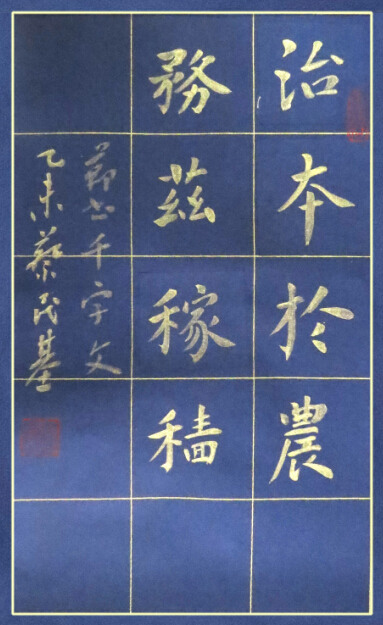 治本於農
務茲稼穡
節書千字文
乙未蔡民基